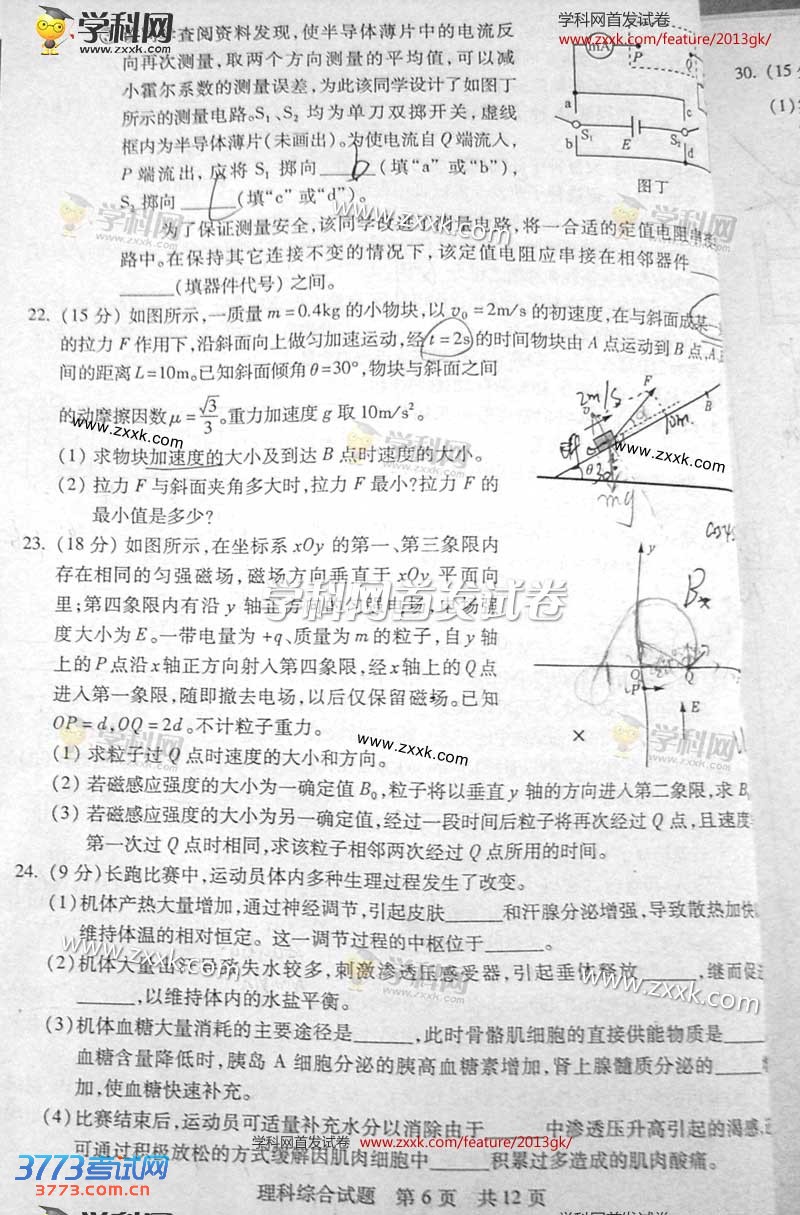 学科网首发试卷
www.zxxk.com/feature/2013gk/
学科网
www.zxxk.com
查阅资料发现,使半导体薄片中的电流反
向再次测量,取两个方向测量的平均值,可以减
小霍尔系数的测量误差,为此该同学设计了如图丁
所示的测量电路。S₁、S₂ 均为单刀双掷开关,虚线
框内为半导体薄片(未画出)。为使电流自 Q 端流入,
P 端流出,应将 S₁ 掷向 b (填“a”或“b”),
S₂ 掷向 c (填“c”或“d”)。
mA
P
Q
a
c
S₁
E
S₂
b
d
图丁
为了保证测量安全,该同学改进了测量电路,将一合适的定值电阻串
路中。在保持其它连接不变的情况下,该定值电阻应串接在相邻器件
(填器件代号)之间。
22. (15 分) 如图所示,一质量 m = 0.4kg 的小物块,以 v₀ = 2m/s 的初速度,在与斜面成某
的拉力 F 作用下,沿斜面向上做匀加速运动,经 t = 2s 的时间物块由 A 点运动到 B 点,A、
间的距离 L = 10m。已知斜面倾角 θ = 30°,物块与斜面之间
的动摩擦因数 μ = √3/3。重力加速度 g 取 10m/s²。
(1) 求物块加速度的大小及到达 B 点时速度的大小。
(2) 拉力 F 与斜面夹角多大时,拉力 F 最小?拉力 F 的
最小值是多少?
2m/s
F
B
10m
θ
mg
23. (18 分) 如图所示,在坐标系 xOy 的第一、第三象限内
存在相同的匀强磁场,磁场方向垂直于 xOy 平面向
里;第四象限内有沿 y 轴正方向的匀强电场,电场强
度大小为 E。一带电量为 +q、质量为 m 的粒子,自 y 轴
上的 P 点沿 x 轴正方向射入第四象限,经 x 轴上的 Q 点
进入第一象限,随即撤去电场,以后仅保留磁场。已知
OP = d,OQ = 2d。不计粒子重力。
(1) 求粒子过 Q 点时速度的大小和方向。
(2) 若磁感应强度的大小为一确定值 B₀,粒子将以垂直 y 轴的方向进入第二象限,求 B
(3) 若磁感应强度的大小为另一确定值,经过一段时间后粒子将再次经过 Q 点,且速度
第一次过 Q 点时相同,求该粒子相邻两次经过 Q 点所用的时间。
y
B
x
O
Q
P
E
×
24. (9 分)长跑比赛中,运动员体内多种生理过程发生了改变。
(1)机体产热大量增加,通过神经调节,引起皮肤______和汗腺分泌增强,导致散热加快
维持体温的相对恒定。这一调节过程的中枢位于______。
(2)机体大量出汗导致失水较多,刺激渗透压感受器,引起垂体释放______,继而促进
______,以维持体内的水盐平衡。
(3)机体血糖大量消耗的主要途径是______,此时骨骼肌细胞的直接供能物质是____
血糖含量降低时,胰岛 A 细胞分泌的胰高血糖素增加,肾上腺髓质分泌的____
加,使血糖快速补充。
(4)比赛结束后,运动员可适量补充水分以消除由于______中渗透压升高引起的渴感;
可通过积极放松的方式缓解因肌肉细胞中______积累过多造成的肌肉酸痛。
理科综合试题 第 6 页 共 12 页
学科网首发试卷
www.zxxk.com/feature/2013gk/
3773考试网
www.3773.com.cn
30. (15
(1)